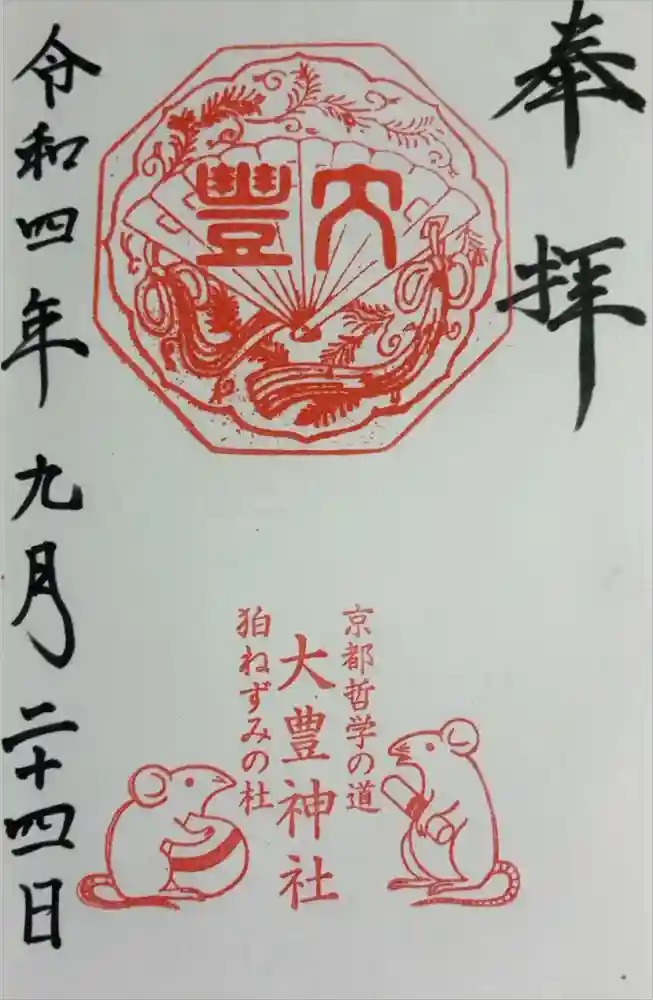 奉拝
大豐
京都哲学の道
大豊神社
狛ねずみの杜
令和四年九月二十四日